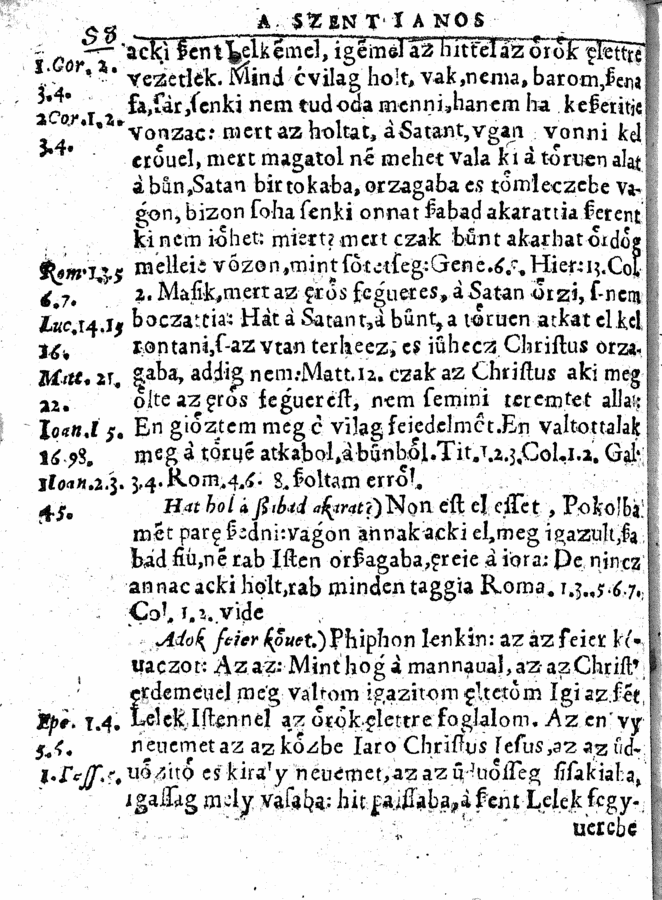 58
A SZENT IANOS
acki ßent Lelkẽmel, igẽmel az hittel az ỏrỏk ęlettre
1.Cor. 2.
vezetlek. Mind ćvilag holt, vak, nema, barom, ßena
3.4.
fa, ſár, ſenki nem tud oda menni, hanem ha keßeritie
2Cor.1.2.
vonzac: mert az holtat, à Satant, vgan vonni kel
3.4.
erỏuel, mert magatol nẽ mehet vala ki à tỏruen alat
à bủn, Satan birtokaba, orzagaba es tỏmleczebe va-
ǵon, bizon ſoha ſenki onnat ßabad akarattia ßerent
ki nem iỏhet: miert? mert czak bủnt akarhat ỏrdỏg
Rom.1.3.5
melleie vỏzon, mint ſỏtetſeg: Gene.6. Hier:13. Col.
6.7.
2. Maſik, mert az ęrỏs feǵueres, à Satan ỏrzi, ſ-nem
Luc.14.15
boczattia: Hàt à Satant, à bủnt, a tỏruen atkat el kel
16.
rontani, ſ-az vtan terheez, es iủhecz Chriſtus orza-
Matt. 21.
gaba, addig nem: Matt.12. czak az Chriſtus aki meg
22.
ỏlte az ęrỏs feǵuereſt, nem ſemini teremtet allat:
Ioan.1 5.
En giỏztem meg ẽ vilag feiedelmẽt. En valtottalak
16 98.
meg à tỏruẽ atkabol, à bủnbỏl. Tit.1.2.3. Col.1.2. Gal.
1Ioan.2.3.
3.4. Rom.4.6. 8. ßoltam errỏl.
Hat hol à ßabad akarat?) Non eſt el eſſet, Pokolba
4 5.
mẽt parę ßedni: vaǵon annak acki el, meg igazult, ßa
bad fiủ, nẽ rab Iſten orßagaba, ęreie à iora: De nincz
annac acki holt, rab minden taggia Roma. 1.3..5.6.7.
Col. 1.2. vide
Adok feier kỏuet.) Phiphon lenkin: az az feier kỏ-
uaczot: Az az: Mint hoǵ à mannaual, az az Chriſt'
ęrdemeuel meg valtom igazitom ęltetỏm Igi az ßẽt
Epe. 1.4.
Lelek Iſtennel az ỏrỏk ęlettre foglalom. Az en vy
5.6.
neuemet az az kỏzbe Iaro Chriſtus Ieſus, az az ủd-
1.Teſſ.
uỏzitỏ es kiraly neuemet, az az ủduỏſſeg ſiſakiaba,
igaſſag mely vaſaba: hit paiſſaba, à ßent Lelek fegy-
uerebe